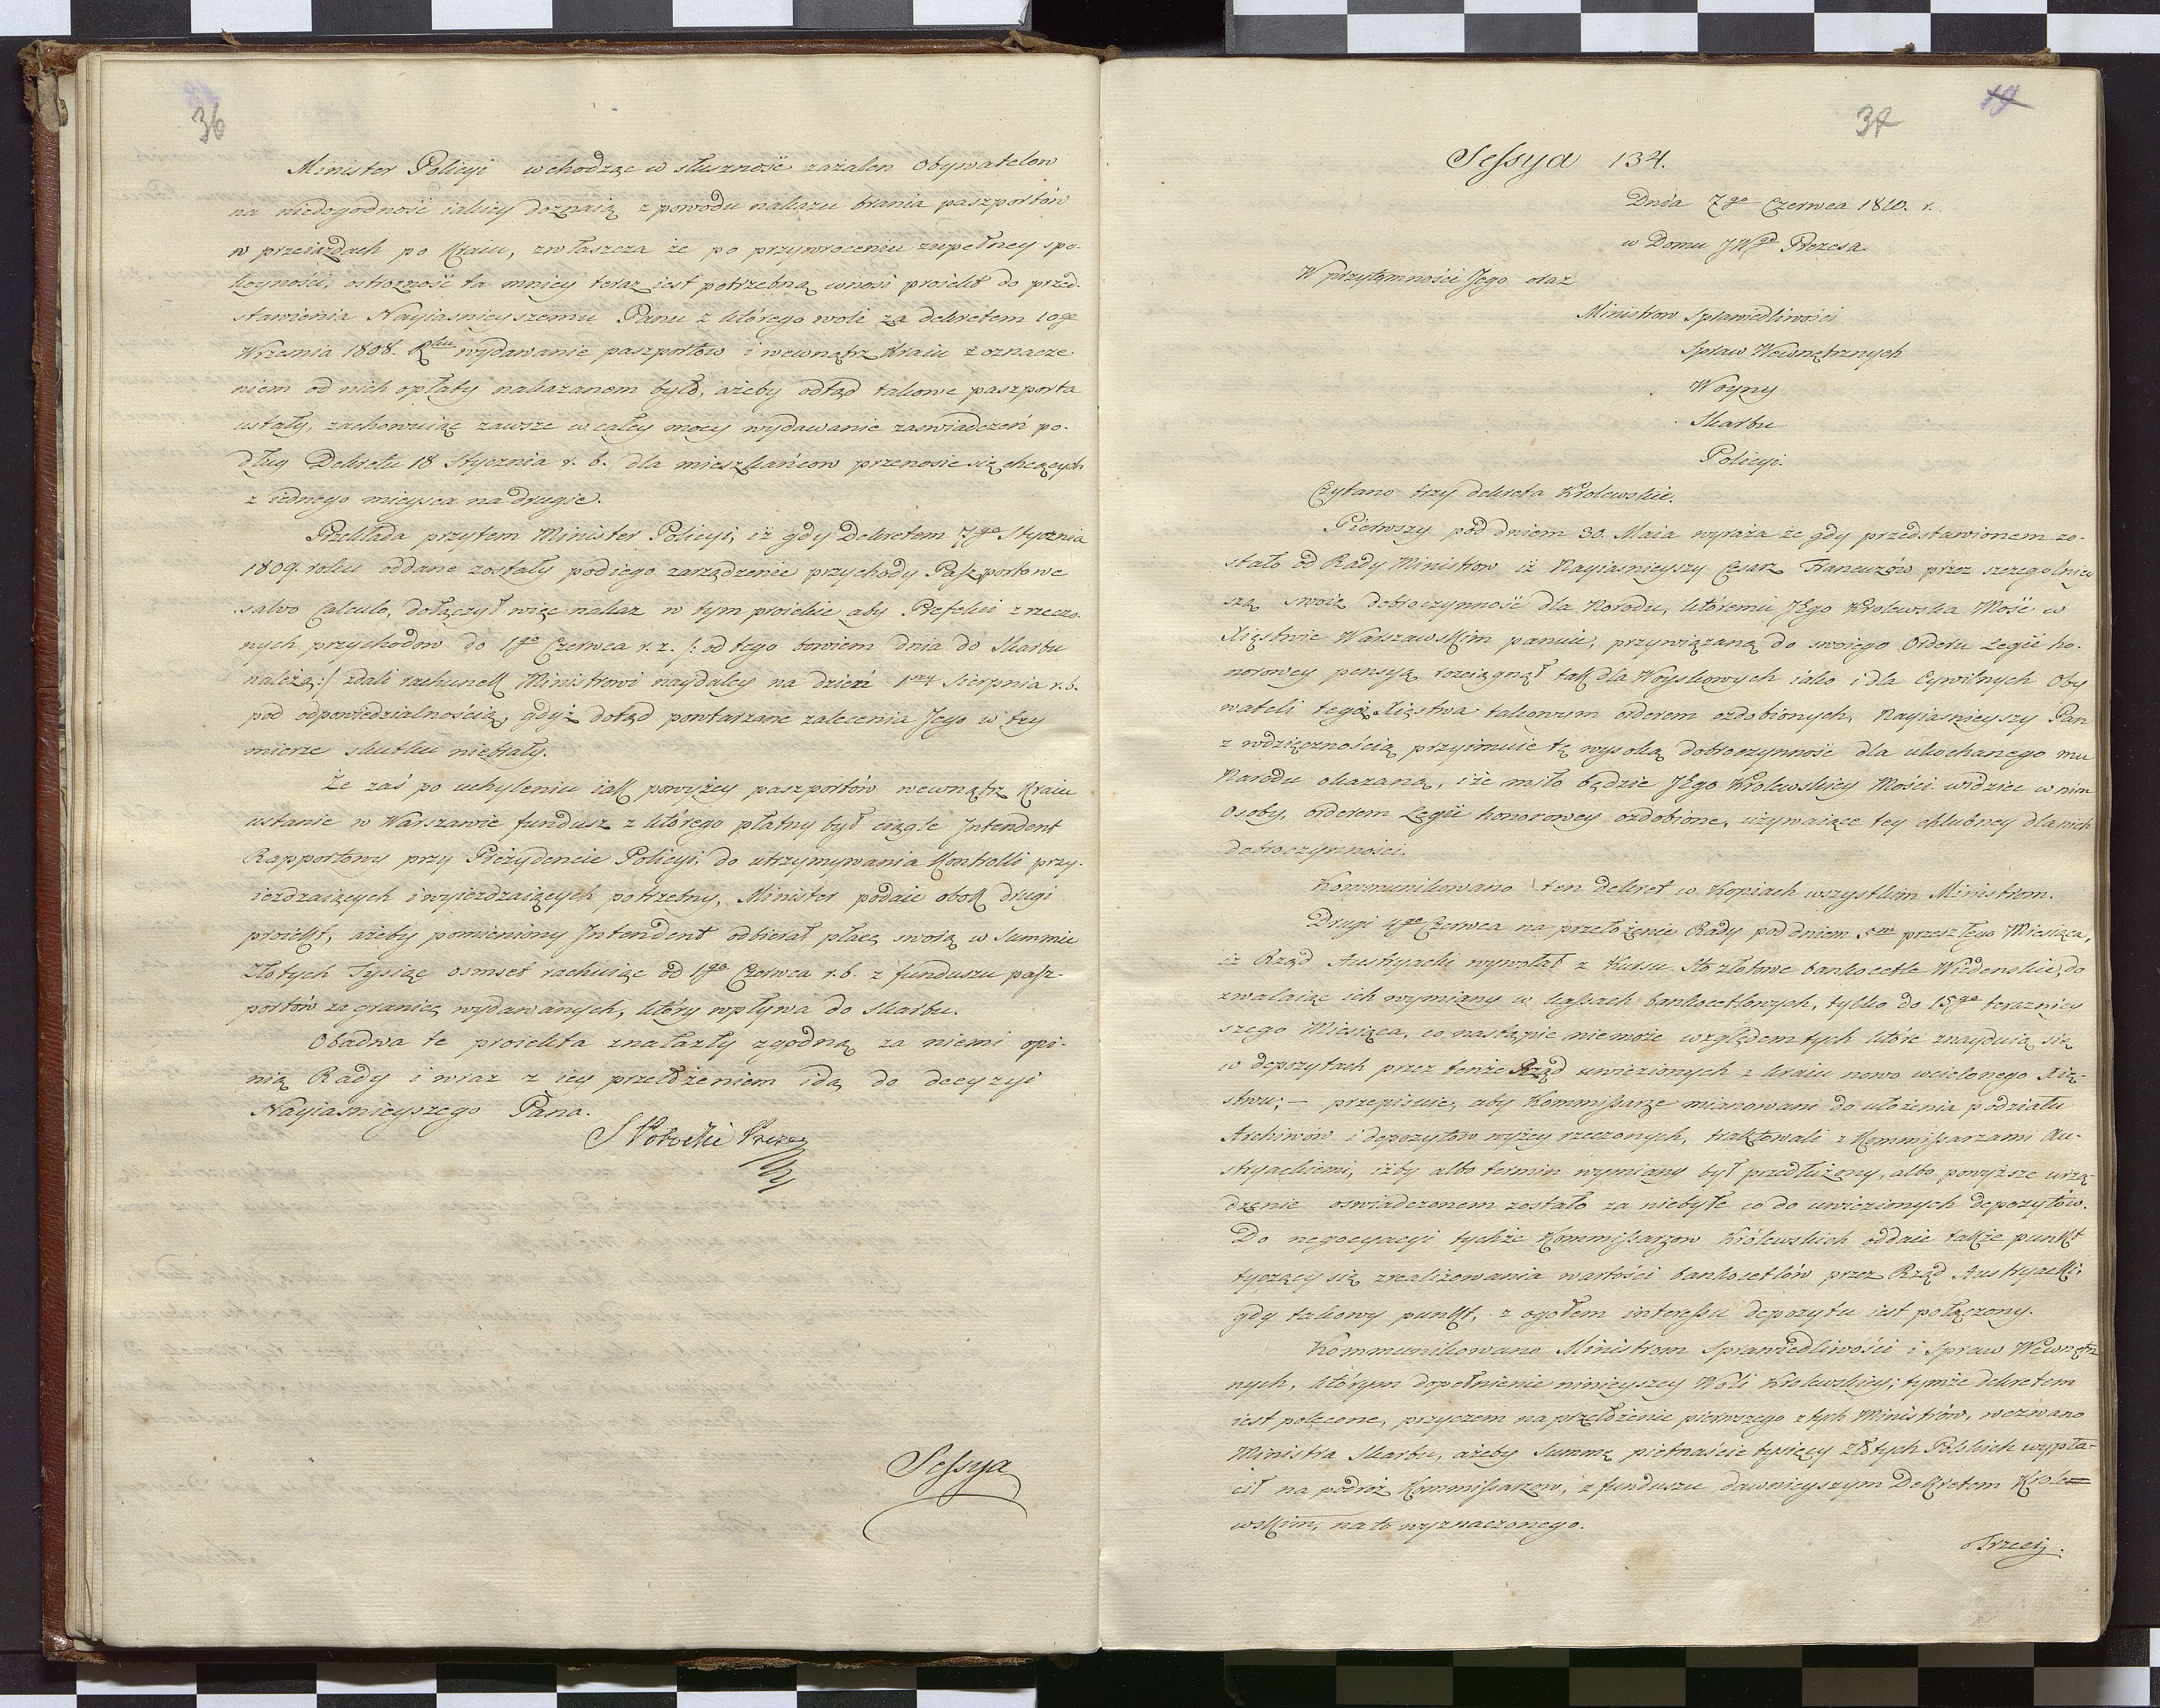 36
Minister Policyi wchodząc w słuszność zażalen Obywatelow
na niedogodność iakiey doznaią z powodu nakazu brania paszportów
w przeiazdach po Kraiu, zwłaszcza że po przywroceniu zupełney spo-
koyności, ostrożność ta mniey teraz iest potrzebną wnosi proiekt do przed-
stawienia Nayiasnieyszemu Panu z którego woli za dekretem 10go
Wrzesnia 1808. Rku wydawanie paszportow i wewnątrz Kraiu z oznacze
niem od nich opłaty nakazanem było, ażeby odtąd takowe paszporta
ustały, zachowuiąc zawsze w całey mocy wydawanie zaswiadczeń po-
dług Dekretu 18 Stycznia r. b. dla mieszkańcow przenosic się chcących
z iednego mieysca na drugie.
Przekłada przytem Minister Policyi, iż gdy Dekretem 7go Stycznia
1809. roku oddane zostały pod iego zarządzenie przychody Paszportowe
salvo Calculo, dołączył więc nakaz w tym proiekcie aby Prefekci z rzeczo-
nych przychodow do 1go Czerwca r. z. /: od tego bowiem dnia do Skarbu
należą:/ zdali rachunek Ministrowi naydaley na dzień 1szy Sierpnia r. b.
pod odpowiedzialnością, gdyż dotąd powtarzane zalecenia Jego w tey
mierze skutku niebrały.
Że zaś po uchyleniu iak powyżey paszportów wewnątrz Kraiu
ustanie w Warszawie fundusz z którego płatny był ciągle Intendent
Rapportowy przy Prezydencie Policyi do utrzymywania Kontrolli przy-
ieżdzaiących i wyieżdzaiących potrzebny, Minister podaie obok drugi
proiekt, ażeby pomieniony Intendent odbierał płacę swoią w Summie
Złotych Tysiąc osmset rachuiąc od 1go Czerwca r. b. z funduszu pasz-
portów za granicę wydawanych, który wpływa do Skarbu.
Obadwa te proiekta znalazły zgodną za niemi opi-
nią Rady i wraz z iey przełożeniem idą do decyzyi
Nayiasnieyszego Pana.
S Potocki Prezes
Sessya
19
37
Sessya 134.
Dnia 7go Czerwca 1810. r.
w Domu JWgo Prezesa.
W przytomności Jego oraz
Ministrow Sprawiedliwości
Spraw Wewnętrznych
Woyny
Skarbu
Policyi.
Czytano trzy dekreta Krolewskie.
Pierwszy pod dniem 30. Maia wyraża że gdy przedstawionem zo-
stało od Rady Ministrow iż Nayiasnieyszy Cesarz Francuzów przez szczegolniey
szą swoią dobroczynność dla Narodu, któremu JEgo Krolewska Mość w
Xięstwie Warszawskim panuie, przywiązaną do swoiego Orderu Legii ho-
norowey pensyą rozciągnął tak dla Woyskowych iako i dla Cywilnych Oby
wateli tegoż Xięstwa takowym orderem ozdobionych, Nayiasnieyszy Pan
z wdzięcznością przyimuie tę wysoką dobroczynność dla ukochanego mu
Narodu okazaną, i że miło będzie JEgo Krolewskiey Mości widziec w nim
Osoby, orderem Legii honorowey ozdobione, używaiące tey chlubney dla nich
dobroczynności.
Kommunikowano ten dekret w Kopiach wszystkim Ministrom.
Drugi 4go Czerwca na przełożenie Rady pod dniem 5m przeszłego Miesiąca,
iż Rząd Austryacki wywołał z Kursu Sto złotowe bankocetle Wiedenskie, do
zwalaiąc ich wymiany w kassach bankocetlowych, tylko do 15go terazniey
szego Miesiąca, co nastąpic niemoże względem tych które znayduią się
w depozytach przez tenże Rząd uwiezionych z kraiu nowo wcielonego Xię-
stwu; – przepisuie, aby Kommissarze mianowani do ułożenia podziału
Archiwów i depozytow wyżey rzeczonych, traktowali z Kommissarzami Au-
stryackiemi, iżby albo termin wymiany był przedłużony, albo powyższe urzą
dzenie oswiadczonem zostało za niebyłe co do uwiezionych depozytów.
Do negocyacyi tychże Kommissarzow Królewskich oddaie także punkt
tyczący się zrealizowania wartości bankocetlów przez Rząd Austryacki,
gdy takowy punkt, z ogołem interessu depozytu iest połączony.
Kommunikowano Ministrom Sprawiedliwości i Spraw Wewnętrz
nych, którym dopełnienie ninieyszey Woli Krolewskiey; tymże dekretem
iest polecone, przyczem na przełożenie pierwszego z tych Ministrów, wezwano
Ministra Skarbu, ażeby Summę piętnaście tysięcy Złotych Polskich wypła-
cił na podróż Kommissarzow, z funduszu dawnieyszym Dekretem Krole=
wskim, na to wyznaczonego.
Trzeci.